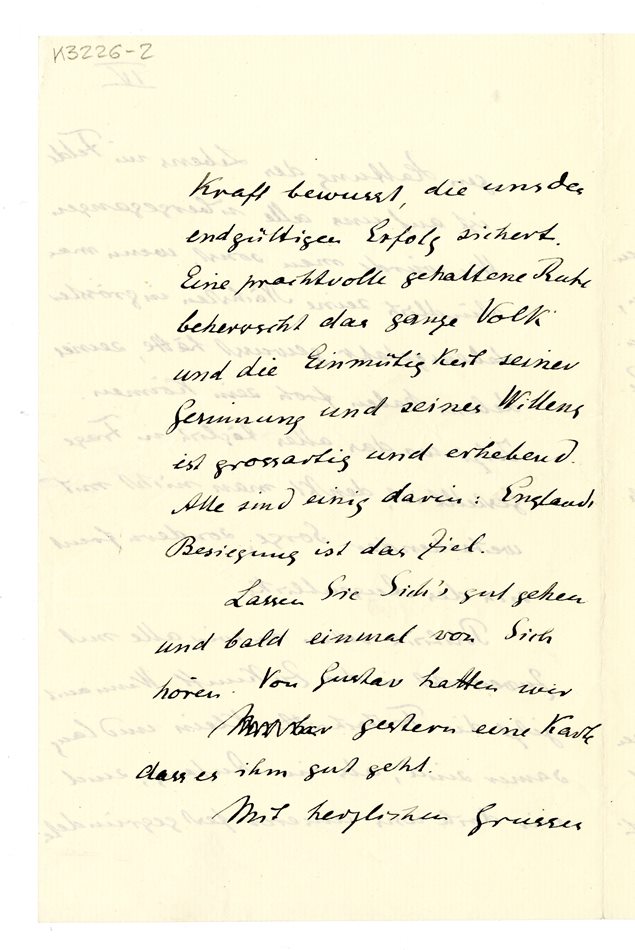 K3226-2
IV
Kraft bewusst, die uns den
endgültigen Erfolg sichert.
Eine prachtvolle gehaltene Ruhe
beherrscht das ganze Volk
und die Einmütigkeit seiner
Gesinnung und seines Willens
ist grossartig und erhebend.
Alle sind einig darin: Englands
Besiegung ist das Ziel.
Lassen Sie Sich's gut gehen
und bald einmal von Sich
hören. Von Gustav hatten wir
gestern eine Karte
dass es ihm gut geht.
Mit herzlichen Grüssen